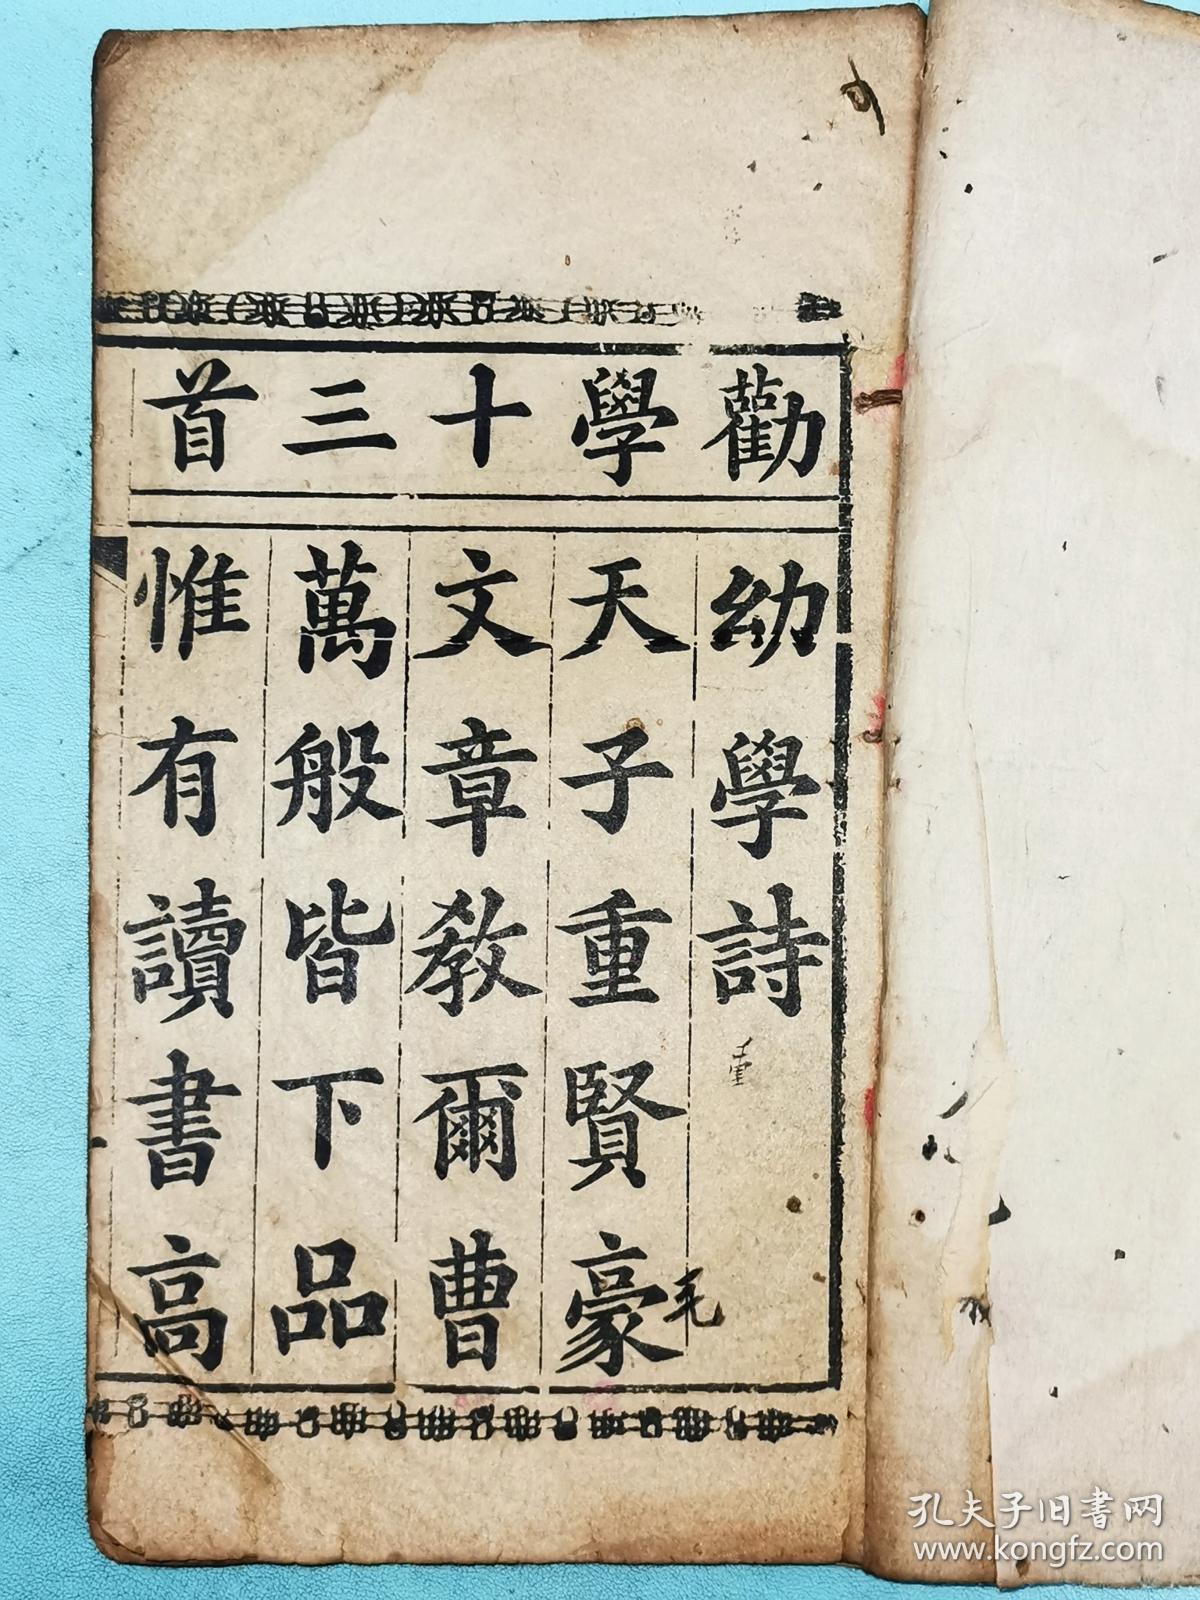 勸學十三首
幼學詩
天子重賢豪
文章教爾曹
萬般皆下品
惟有讀書高
毛
孔夫子旧書网
www.kongfz.com